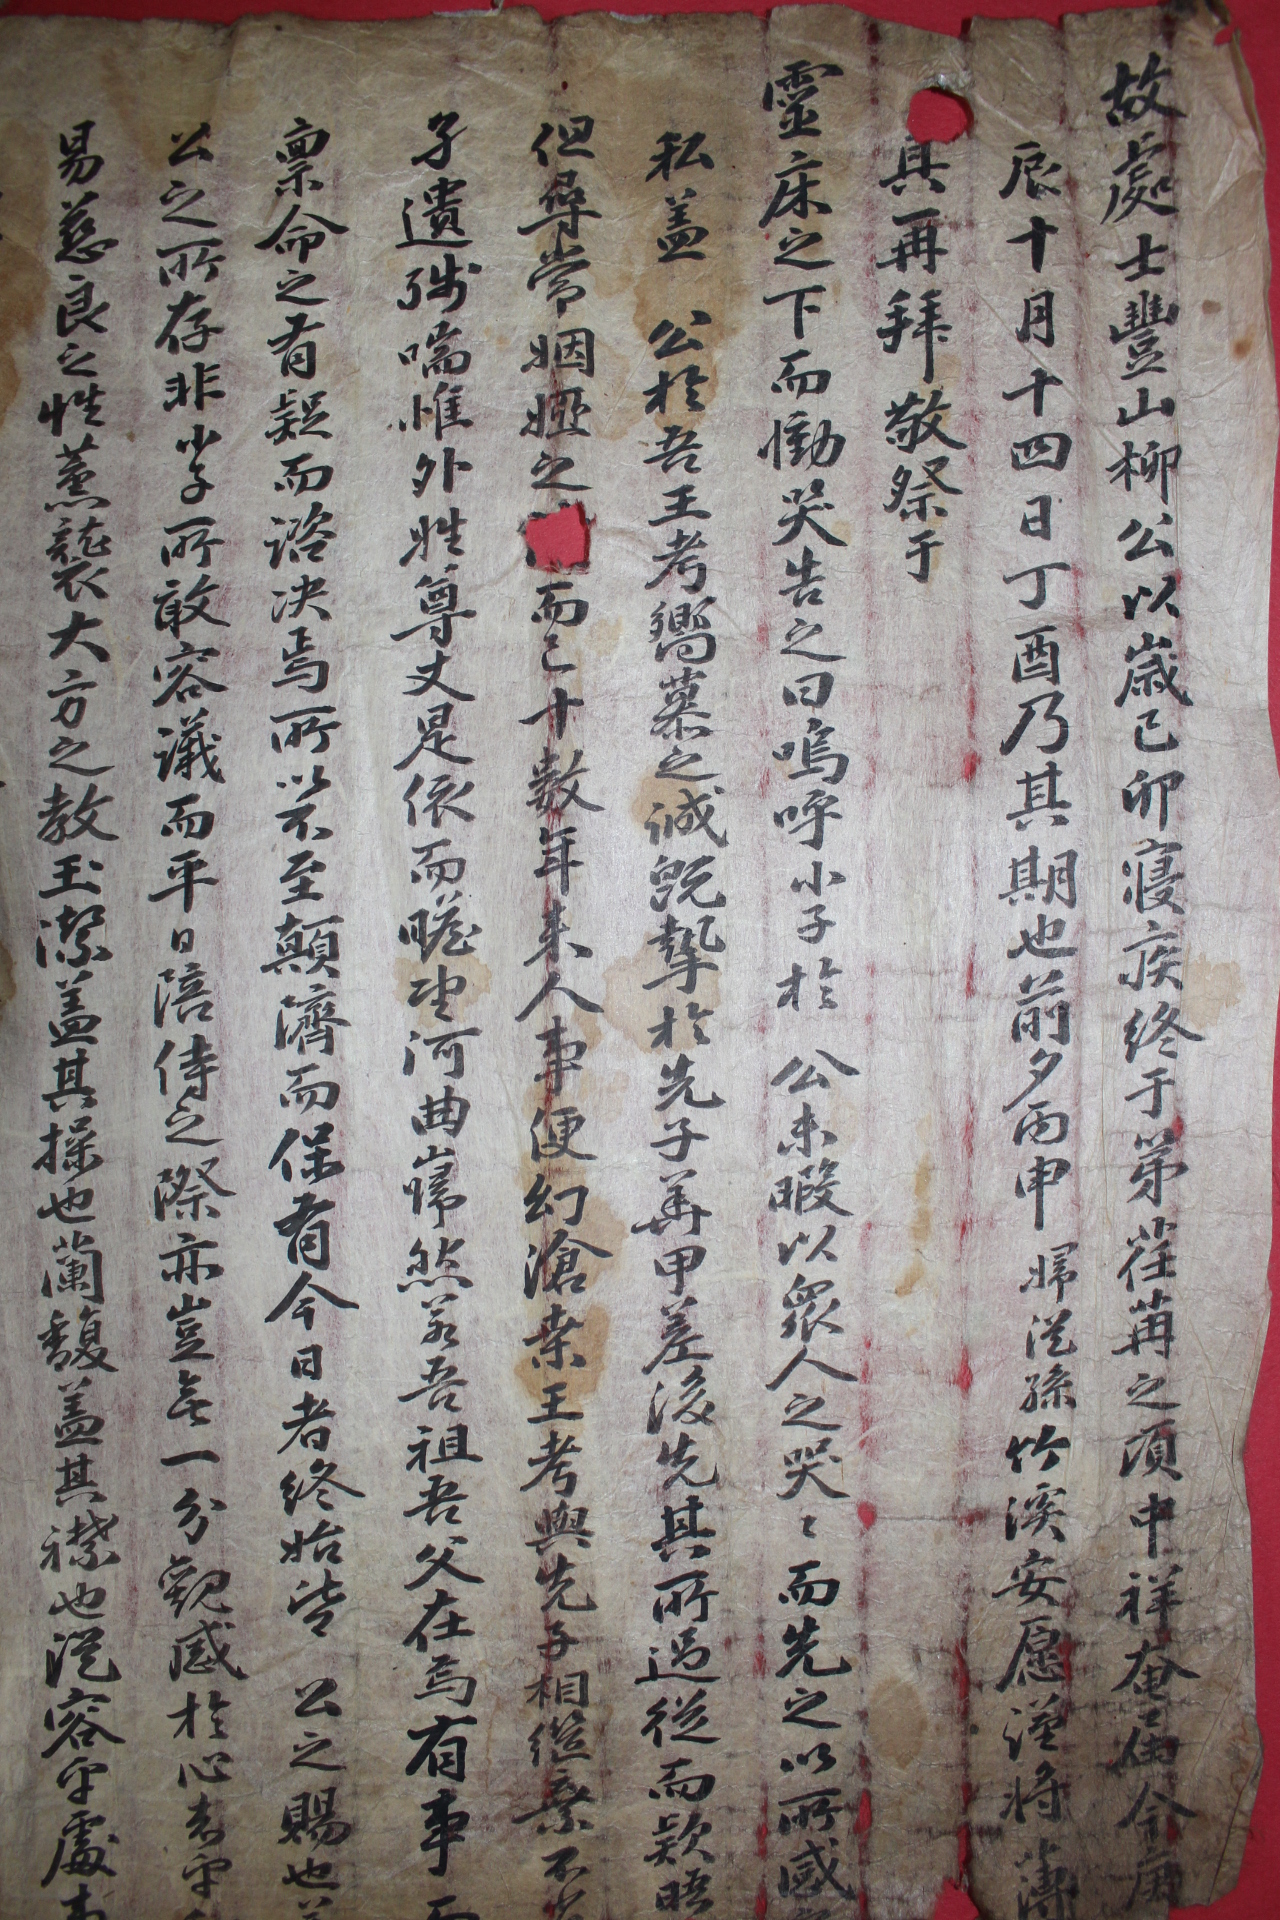 故處士豊山柳公以歲己卯寢疾終于第荏苒之頃中祥奄届今庚
辰十月十四日丁酉乃其期也前夕丙申婦從孫竹溪安愿謹將薄
具一再拜敬祭于
靈床之下而慟哭告之曰嗚呼小子於 公未暇以衆人之哭〻而先之以所感
私盖 公於吾王考嚮慕之誠旣摯於先子冓甲差後先其所過從而欵晤
但尋常姻婭之而已十數年來人事便幻滄桑王考與先子相繼棄不
孑遺殘喘惟外姓尊丈是依而瞻望河曲巋然若吾祖吾父在焉有事而
禀命之有疑而諮决焉所以不至顛隮而保有今日者終始皆 公之賜也
公之所存非小子所敢容議而平日陪侍之際亦豈無一分觀感於心者乎
易慈良之性薰襲大方之教玉潔盖其操也蘭馥盖其襟也從容乎處